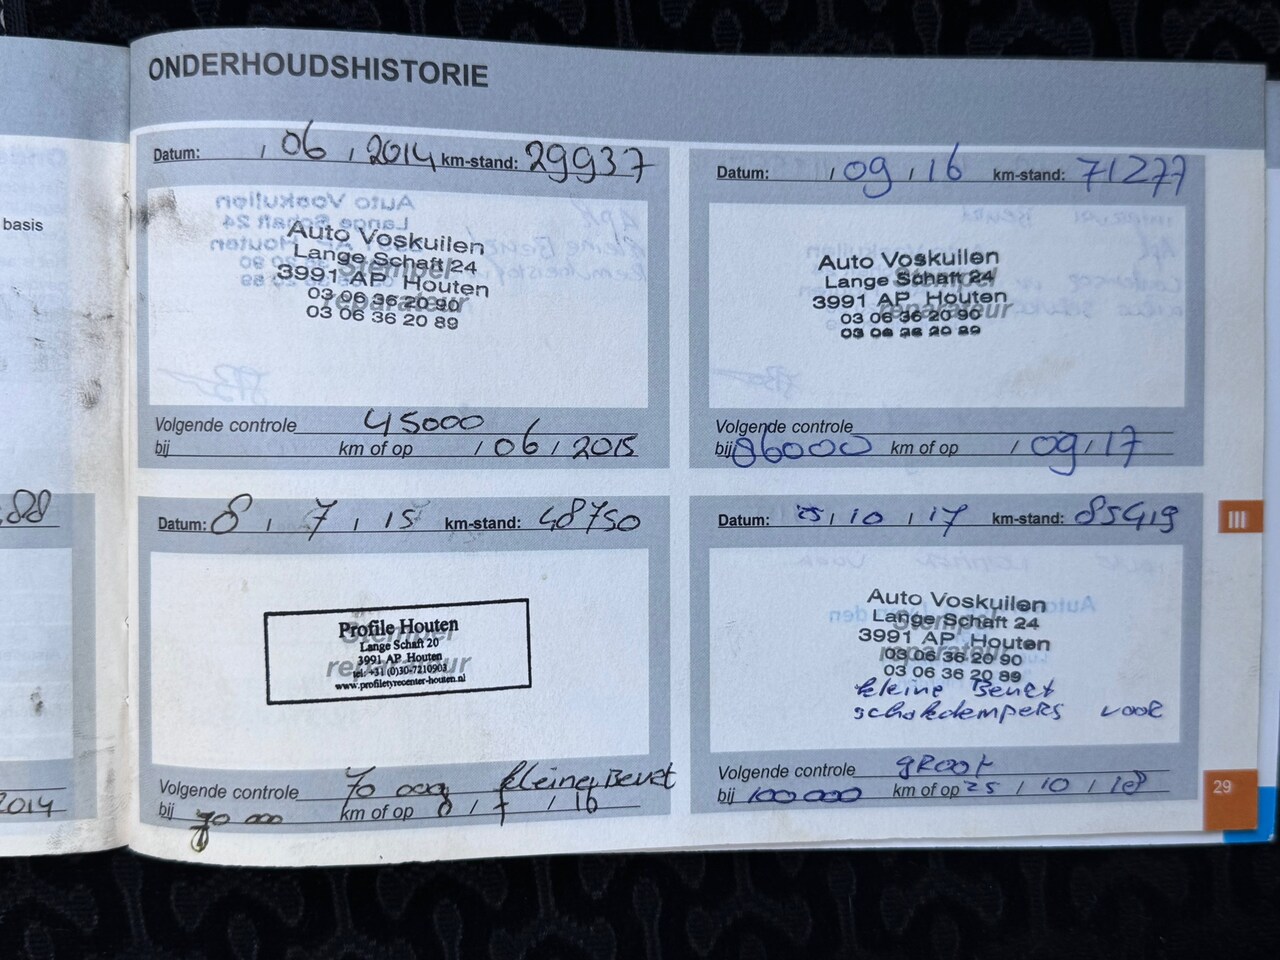 ONDERHOUDSHISTORIE
basis
88
2014
Datum: / 06 / 2014 km-stand: 29937
Auto Voskuilen
Lange Schaft 24
3991 AP Houten
03 06 36 20 90
03 06 36 20 89
Stempel
reparateur
Volgende controle 45000
bij km of op / 06 / 2015
Datum: 8 / 7 / 15 km-stand: 48750
Profile Houten
Lange Schaft 20
3991 AP Houten
tel: +31 (0)30-7210903
www.profiletyrecenter-houten.nl
Stempel
reparateur
Volgende controle 70 000 kleine Beurt
bij 70 000 km of op 8 / 7 / 16
Datum: / 09 / 16 km-stand: 71277
Auto Voskuilen
Lange Schaft 24
3991 AP Houten
03 06 36 20 90
03 06 36 20 89
Stempel
reparateur
Volgende controle
bij 86000 km of op / 09 / 17
Datum: 25 / 10 / 17 km-stand: 85419
Auto Voskuilen
Lange Schaft 24
3991 AP Houten
03 06 36 20 90
03 06 36 20 89
Stempel
reparateur
kleine Beurt
schokdempers voor
Volgende controle groot
bij 100000 km of op 25 / 10 / 18
III
29